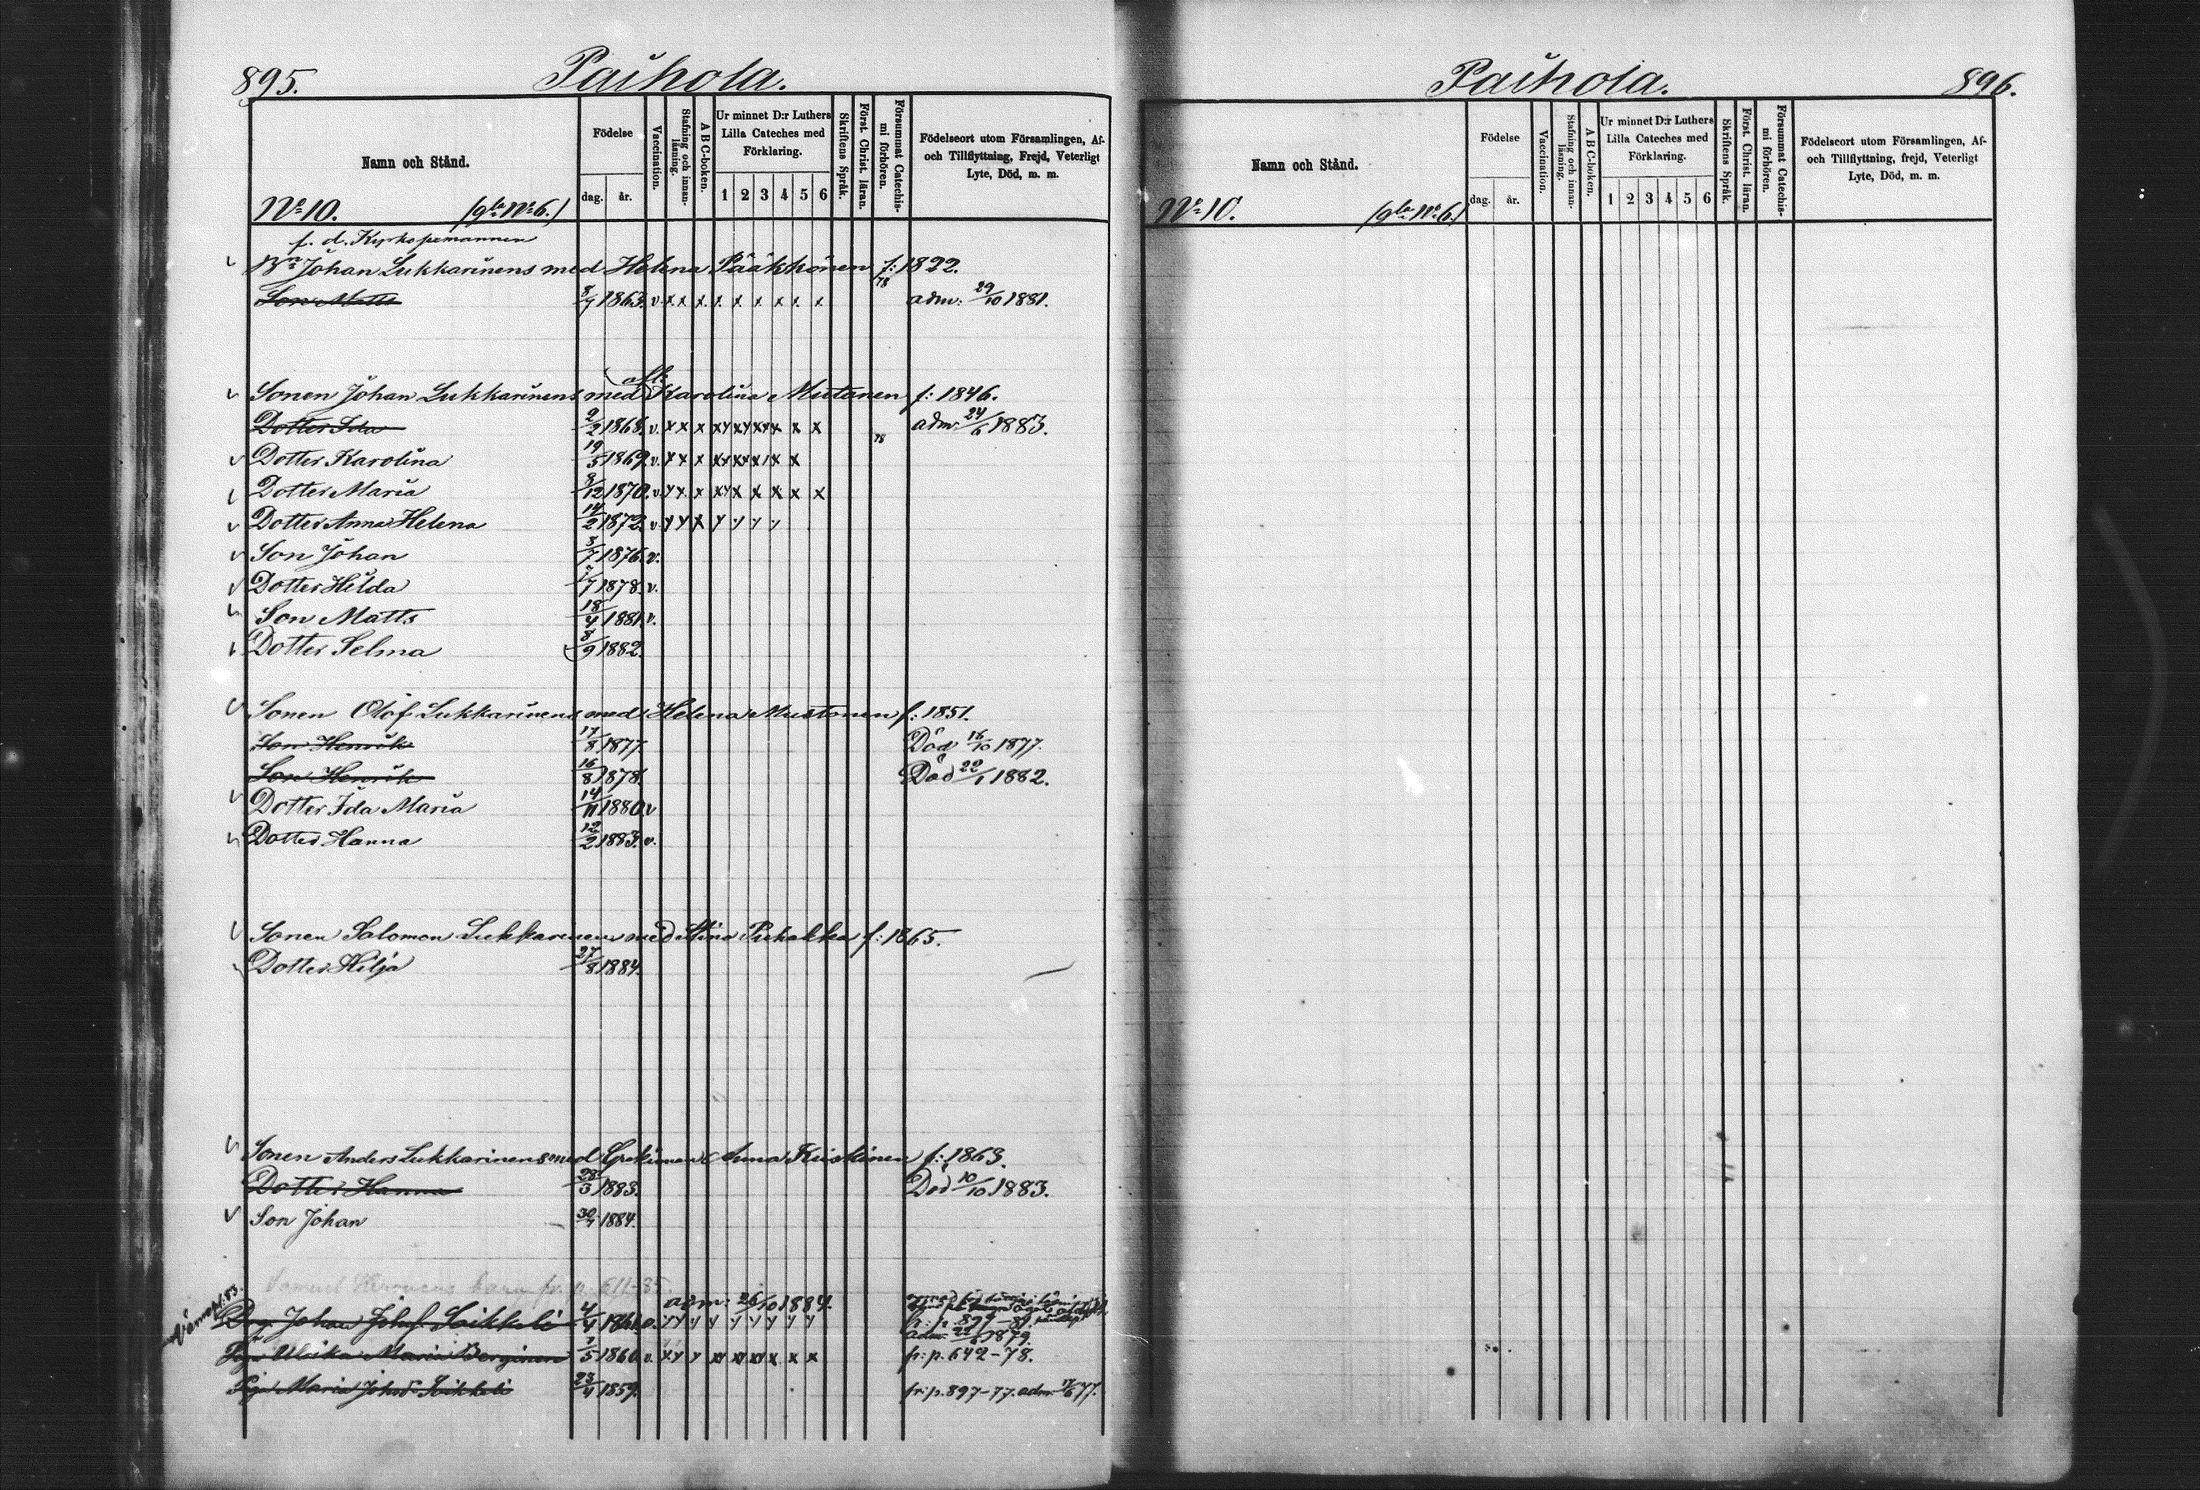 895. Paihola.
Namn och Stånd.
Födelse
dag. år.
Vaccination.
Stafning och innan-läsning.
A B C-boken.
Ur minnet D:r Luthers
Lilla Cateches med
Förklaring.
1 2 3 4 5 6
Skriftens Språk.
Först. Christ. läran.
Försummat Catechis-mi förhören.
Födelseort utom Församlingen, Af-
och Tillflyttning, Frejd, Veterligt
Lyte, Död, m. m.
No 10. (gla No 6.)
f. d. Kyrko
Johan Lukkarinens med Helena Pääkkönen f: 1822.
Son Matts 8/7 1863. v. x x x x x x x x x 78 adm: 29/10 1881.
Sonen Johan Lukkarinens med Karolina Mutanen f: 1846.
Dotter Ida 2/2 1868. v. x x x xy xy xx x x x adm: 24/6 1883.
Dotter Karolina 19/5 1869. v. 78
Dotter Maria 8/12 1870. v.
Dotter Anna Helena 14/2 1872. v.
Son Johan 3/7 1876. v.
Dotter Hilda 1/7 1878. v.
Son Matts 18/4 1881. v.
Dotter Selma 8/9 1882.
Sonen Olof Lukkarinens med Helena Mustonen f: 1851.
Son Henrik 17/8 1877. Död 16/10 1877.
Son Henrik 16/8 1878. Död 22/1 1882.
Dotter Ida Maria 14/11 1880. v
Dotter Hanna 12/2 1883. v.
Sonen Salomon Lukkarinens med Stina Puhakka f: 1865.
Dotter Hilja 27/8 1884.
Sonen Anders Lukkarinens med Anna Kiiskinen f: 1863.
Dotter Hanna 28/3 1883. Död 10/10 1883.
Son Johan 30/7 1884.
Samuel barn fr. p. 611-85.
adm: 26/10 1884.
Drg. Johan Johsf. Soikkeli 4/4 1861. v. fr: p. 897-81.
adm: 1879.
Pig. Ulrika Maria Berginen 1/5 1860. v. fr: p. 642-78.
Pig. Maria Johsd. Soikkeli 23/4 1859. fr: p. 897-77. adm: 17/6 77.
Paihola. 896.
Namn och Stånd.
Födelse
dag. år.
Vaccination.
Stafning och innan-läsning.
A B C-boken.
Ur minnet D:r Luthers
Lilla Cateches med
Förklaring.
1 2 3 4 5 6
Skriftens Språk.
Först. Christ. läran.
Försummat Catechis-mi förhören.
Födelseort utom Församlingen, Af-
och Tillflyttning, frejd, Veterligt
Lyte, Död, m. m.
No 10. (gla No 6.)